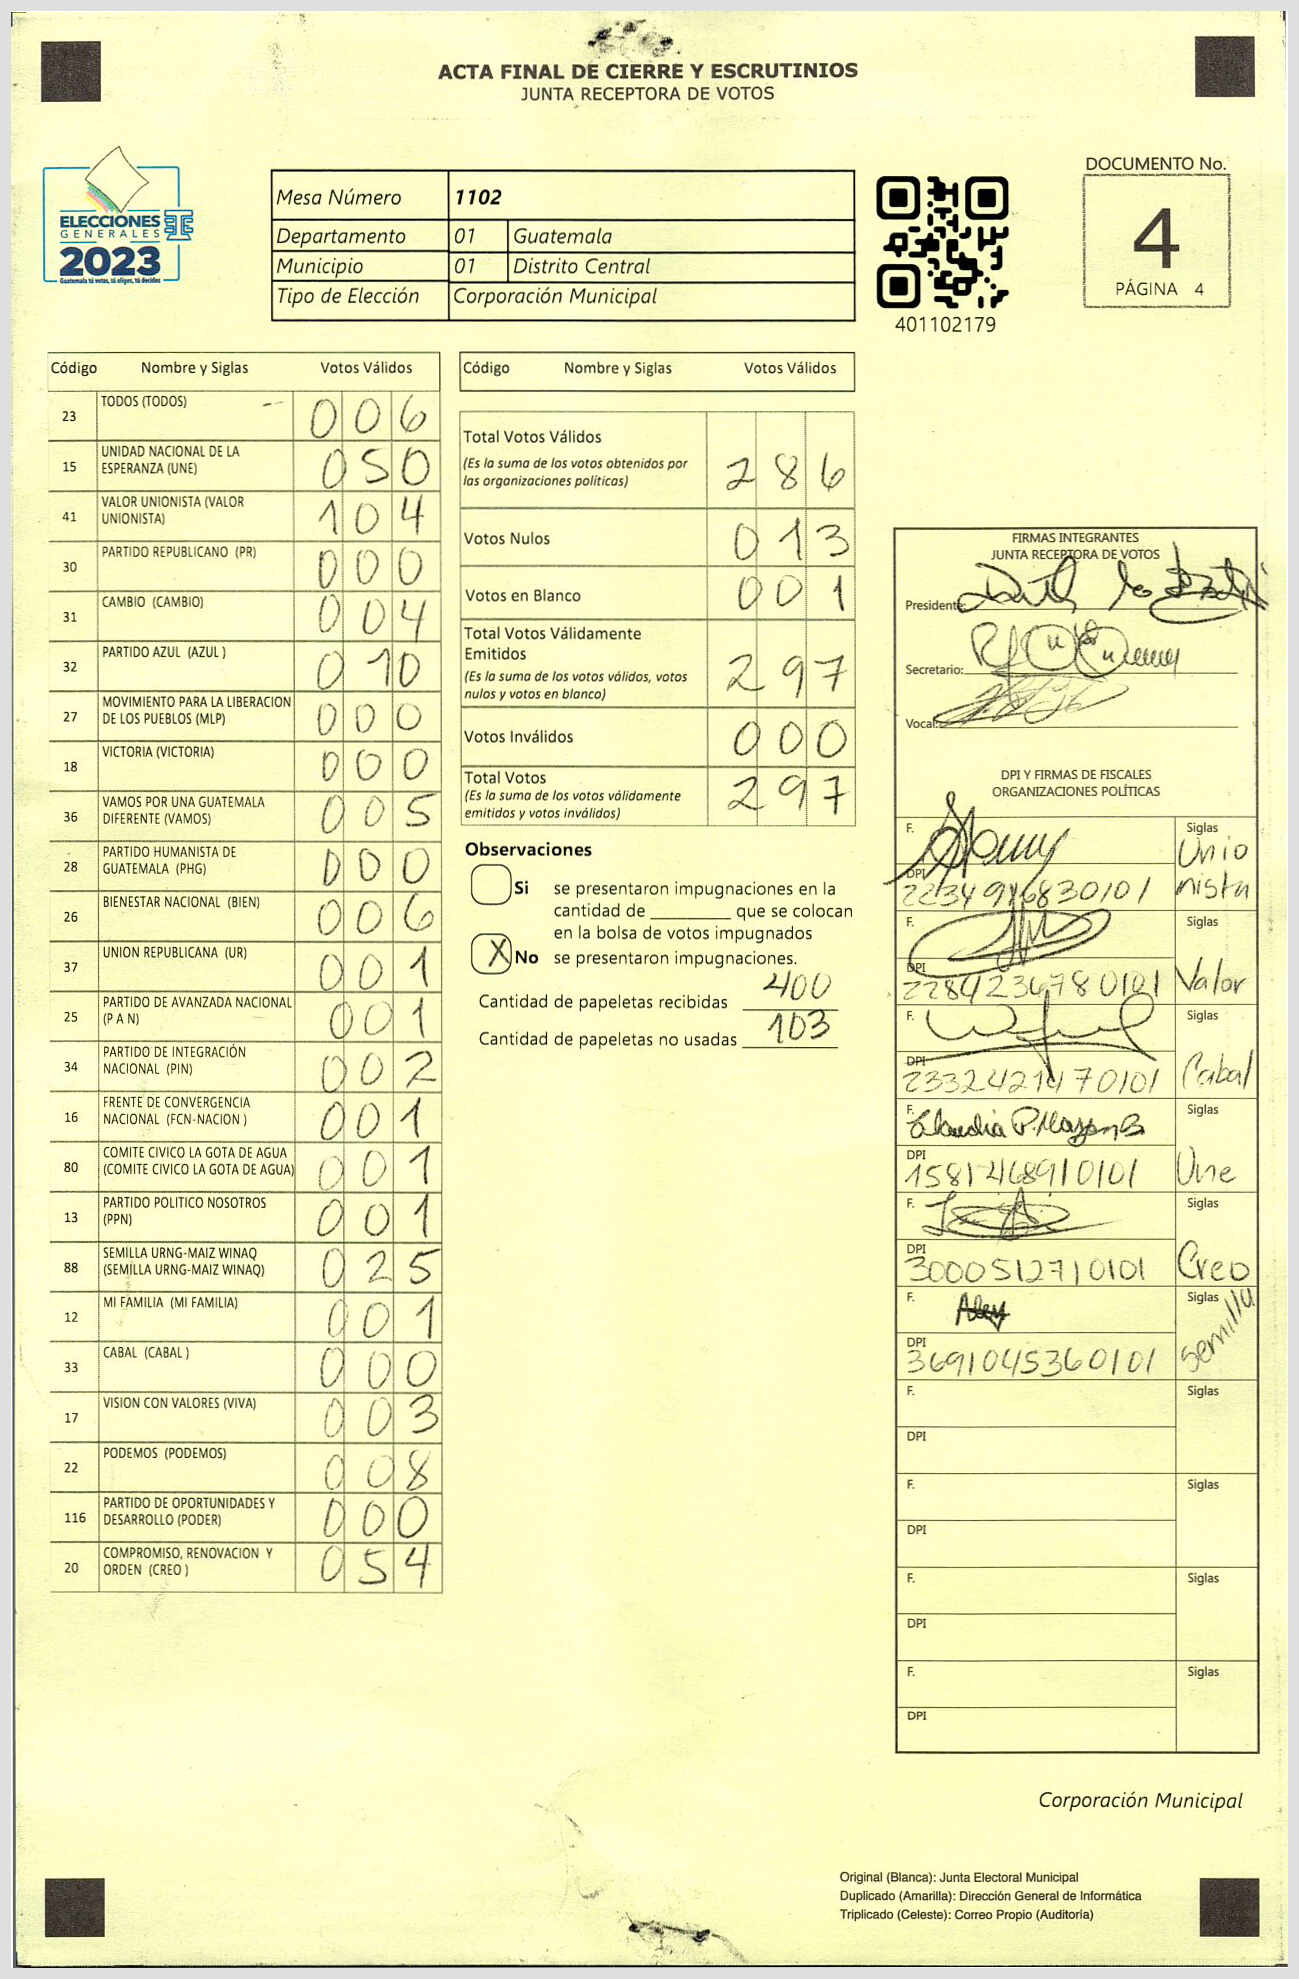 ACTA FINAL DE CIERRE Y ESCRUTINIOS
JUNTA RECEPTORA DE VOTOS
ELECCIONES
GENERALES
2023
Guatemala tú votas, tú eliges, tú decides
Mesa Número 1102
Departamento 01 Guatemala
Municipio 01 Distrito Central
Tipo de Elección Corporación Municipal
401102179
DOCUMENTO No.
4
PÁGINA 4
Código Nombre y Siglas Votos Válidos
23 TODOS (TODOS) 006
15 UNIDAD NACIONAL DE LA
ESPERANZA (UNE) 050
41 VALOR UNIONISTA (VALOR
UNIONISTA) 104
30 PARTIDO REPUBLICANO (PR) 000
31 CAMBIO (CAMBIO) 004
32 PARTIDO AZUL (AZUL ) 010
27 MOVIMIENTO PARA LA LIBERACION
DE LOS PUEBLOS (MLP) 000
18 VICTORIA (VICTORIA) 000
36 VAMOS POR UNA GUATEMALA
DIFERENTE (VAMOS) 005
28 PARTIDO HUMANISTA DE
GUATEMALA (PHG) 000
26 BIENESTAR NACIONAL (BIEN) 006
37 UNION REPUBLICANA (UR) 001
25 PARTIDO DE AVANZADA NACIONAL
(P A N) 001
34 PARTIDO DE INTEGRACIÓN
NACIONAL (PIN) 002
16 FRENTE DE CONVERGENCIA
NACIONAL (FCN-NACION ) 001
80 COMITE CIVICO LA GOTA DE AGUA
(COMITE CIVICO LA GOTA DE AGUA) 001
13 PARTIDO POLITICO NOSOTROS
(PPN) 001
88 SEMILLA URNG-MAIZ WINAQ
(SEMILLA URNG-MAIZ WINAQ) 025
12 MI FAMILIA (MI FAMILIA) 001
33 CABAL (CABAL ) 000
17 VISION CON VALORES (VIVA) 003
22 PODEMOS (PODEMOS) 008
116 PARTIDO DE OPORTUNIDADES Y
DESARROLLO (PODER) 000
20 COMPROMISO, RENOVACION Y
ORDEN (CREO ) 054
Código Nombre y Siglas Votos Válidos
Total Votos Válidos
(Es la suma de los votos obtenidos por
las organizaciones políticas) 286
Votos Nulos 013
Votos en Blanco 001
Total Votos Válidamente
Emitidos
(Es la suma de los votos válidos, votos
nulos y votos en blanco) 297
Votos Inválidos 000
Total Votos
(Es la suma de los votos válidamente
emitidos y votos inválidos) 297
Observaciones
Si se presentaron impugnaciones en la
cantidad de ________ que se colocan
en la bolsa de votos impugnados
X No se presentaron impugnaciones.
Cantidad de papeletas recibidas 400
Cantidad de papeletas no usadas 103
FIRMAS INTEGRANTES
JUNTA RECEPTORA DE VOTOS
Presidente:
Secretario:
Vocal:
DPI Y FIRMAS DE FISCALES
ORGANIZACIONES POLÍTICAS
F. Siglas Unio
DPI 2234916830101 nista
F. Siglas
DPI 2284236780101 Valor
F. Siglas
DPI 2332421470101 Cabal
F. Claudia P. Siglas
DPI 1581468910101 Une
F. Siglas
DPI 3000512710101 Creo
F. Siglas
DPI 3691045360101 Semilla
F. Siglas
DPI
F. Siglas
DPI
F. Siglas
DPI
F. Siglas
DPI
Corporación Municipal
Original (Blanca): Junta Electoral Municipal
Duplicado (Amarilla): Dirección General de Informática
Triplicado (Celeste): Correo Propio (Auditoría)